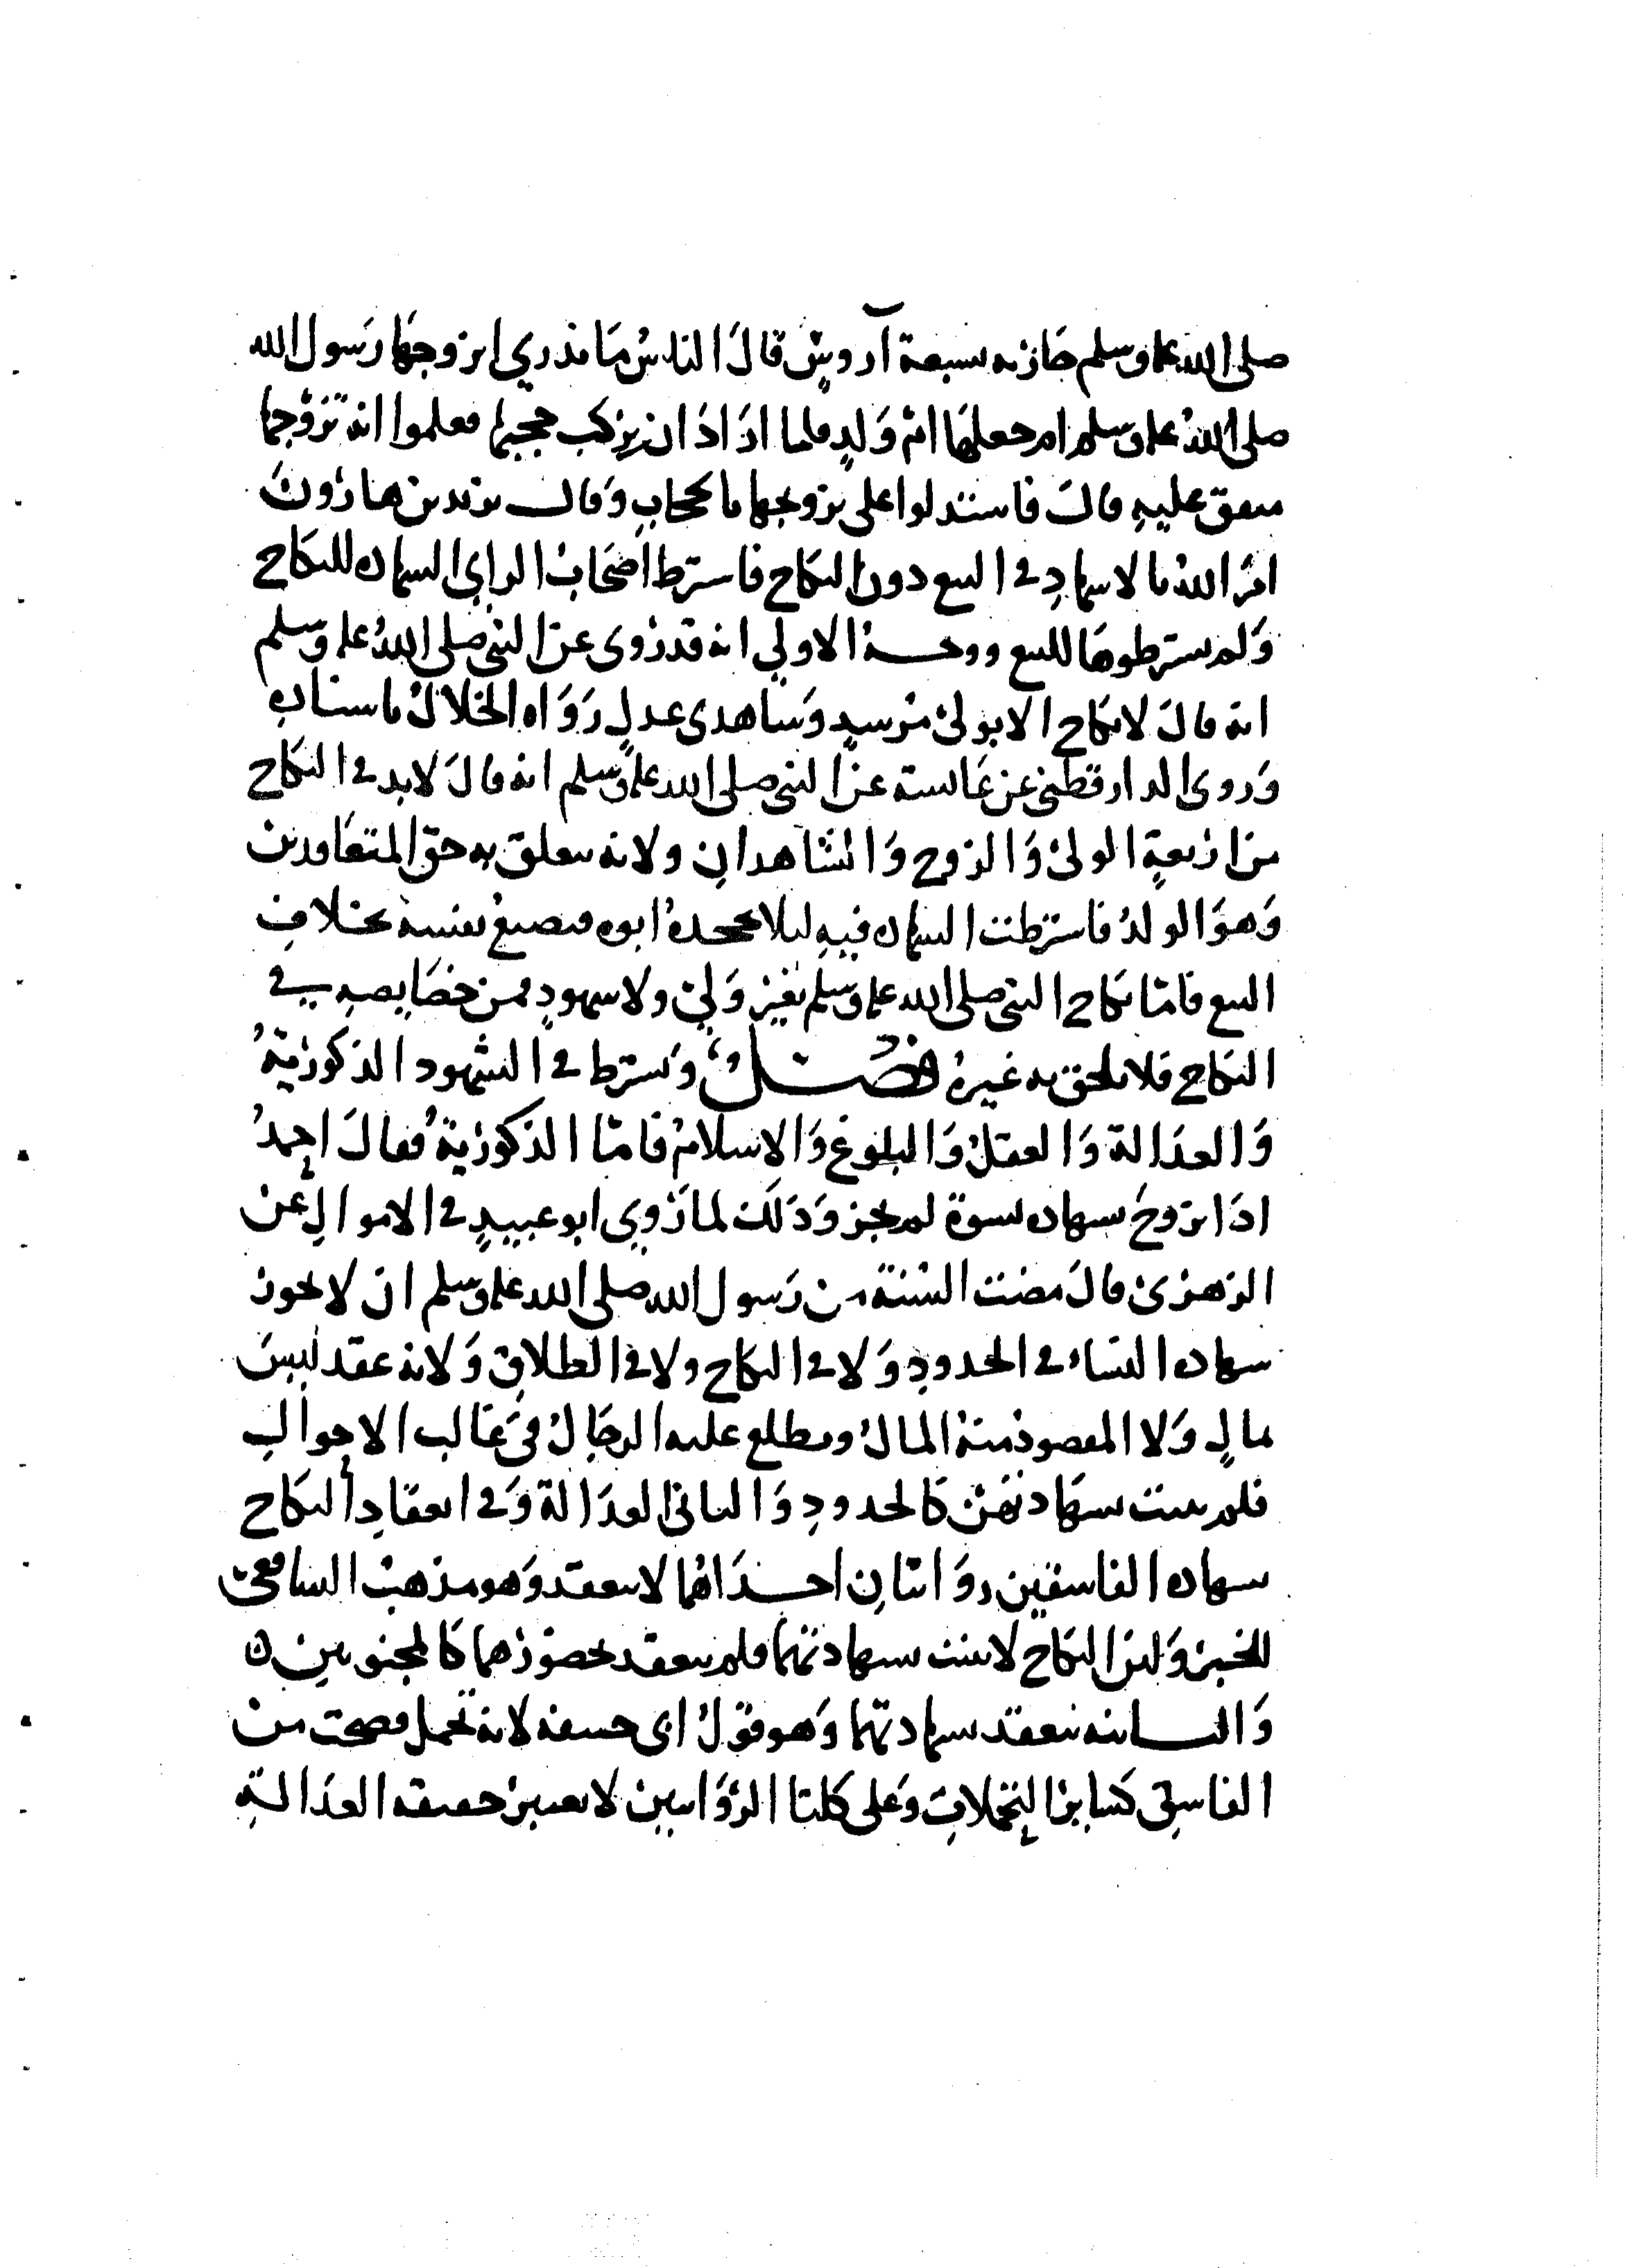 صلى الله عليه وسلم جارية بسبعة آروس قال الناس ما ندري اتزوجها رسول الله
صلى الله عليه وسلم ام جعلها ام ولد فلما اراد ان يركب حجبها فعلموا انه تزوجها
متفق عليه قال فاستدلوا على تزوجها بالحجاب وقال يزيد بن هارون
امر الله بالاشهاد في البيع دون النكاح فاشترط اصحاب الراي الشهادة للنكاح
ولم يشترطوها للبيع ووجه الاولي انه قد روى عن النبي صلى الله عليه وسلم
انه قال لا نكاح الا بولي مرشد وشاهدي عدل رواه الخلال باسناده
وروى الدارقطني عن عائشة عن النبي صلى الله عليه وسلم انه قال لا بد في النكاح
من اربعة الولي والزوج والشاهدان ولانه يتعلق به حق المتعاقدين
وهو الولد فاشترطت الشهادة فيه ليلا يجحده ابوه فيضيع نسبه بخلاف
البيع فاما نكاح النبي صلى الله عليه وسلم بغير ولي ولا شهود فمن خصايصه في
النكاح فلا يلحق به غيره فصل ويشترط في الشهود الذكورية
والعدالة والعقل والبلوغ والاسلام فاما الذكورية فقال احمد
اذا تزوج بشهادة نسوة لم يجز وذلك لما روى ابو عبيد في الاموال عن
الزهري قال مضت السنة من رسول الله صلى الله عليه وسلم ان لا يجوز
شهادة النساء في الحدود ولا في النكاح ولا في الطلاق ولانه عقد ليس
بمال ولا المقصود منه المال ويطلع عليه الرجال في غالب الاحوال
فلم يثبت بشهادتهن كالحدود والثاني العدالة وفي انعقاد النكاح
بشهادة الفاسقين روايتان احداهما لا ينعقد وهو مذهب الشافعي
للخبر ولان النكاح لا يثبت بشهادتهما فلم ينعقد بحضورهما كالمجنونين
والثانية ينعقد بشهادتهما وهو قول ابي حنيفة لانه تحمل فصحت من
الفاسق كسائر التحملات وعلى كلتا الروايتين لا يعتبر حقيقة العدالة